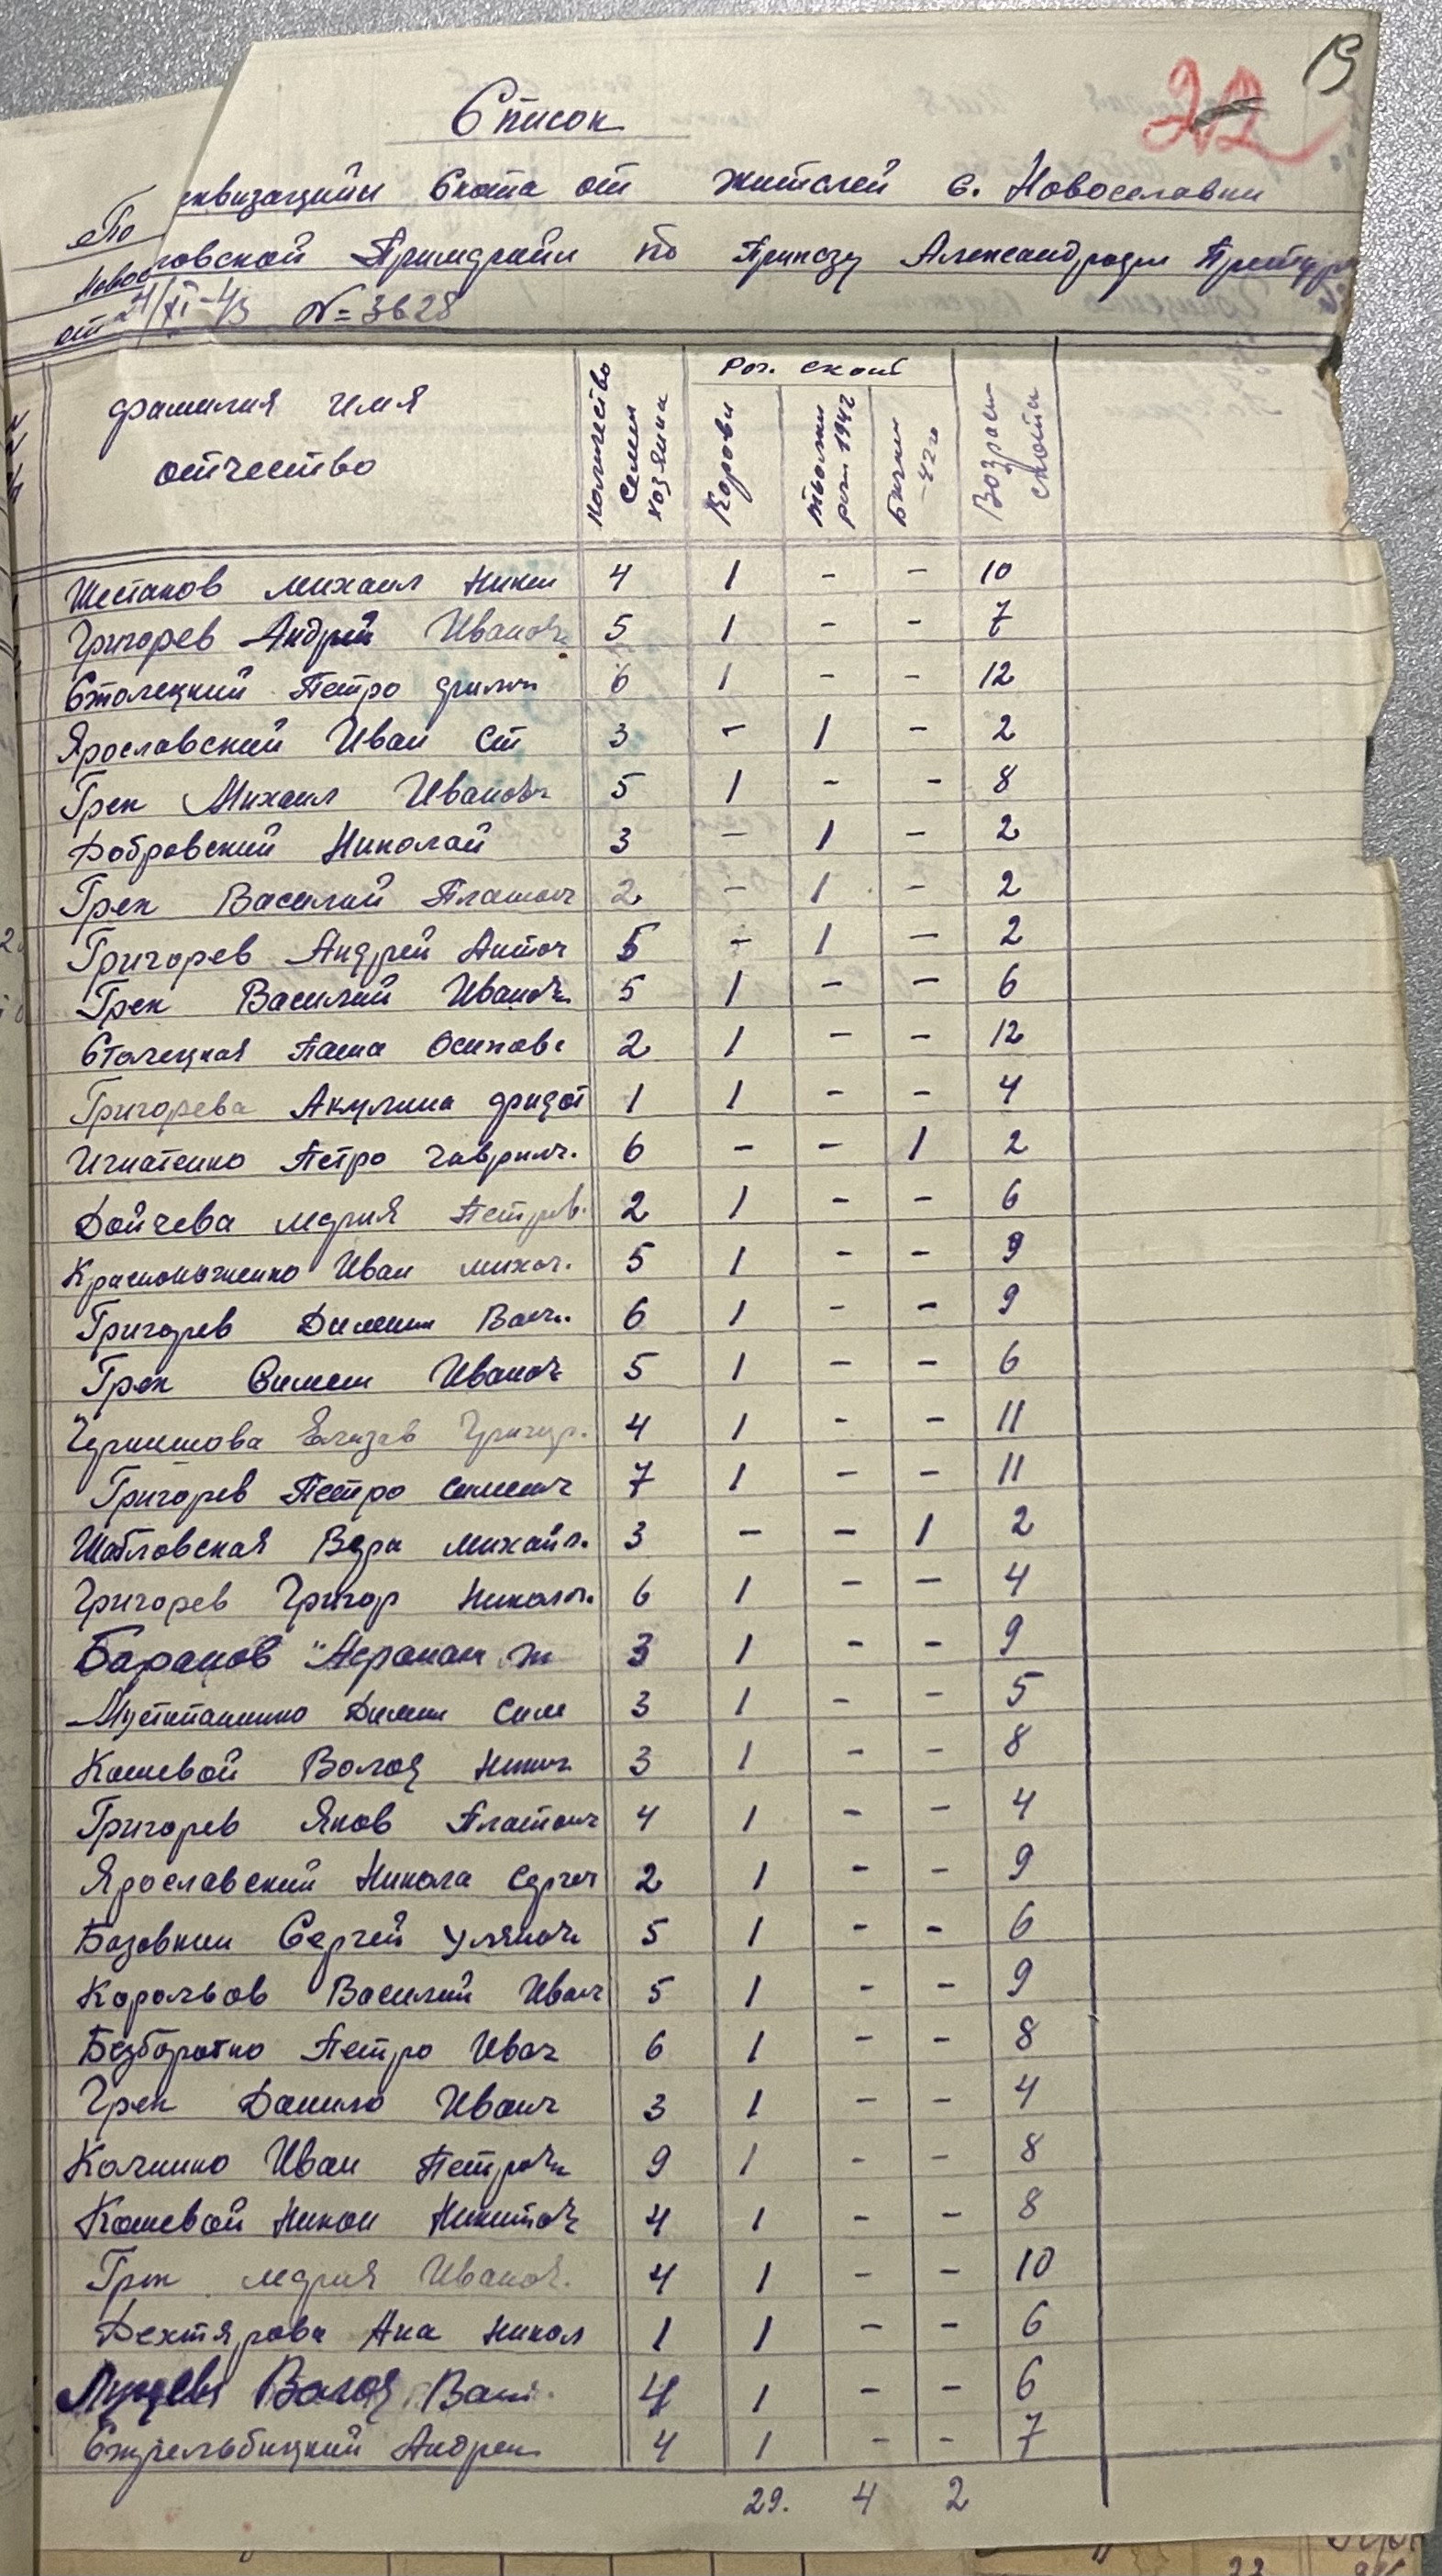 22 19
Список
еквизацийи Скота от жителей с. Новоселовки
По
Новос
говской Примдрайи по Приказу Александродаи Претур
от 21/XI-43 N=3628
фамилия имя
отчество
количество
семеи
хозяина
Рог. скот
Корови
тьолки
рож 1942
Бички
-42го
Возраст
скота
Шестаков Михаил Ники 4 1 - - 10
Григорев Андрей Иванов 5 1 - - 7
Столецкий Петро Филип 6 1 - - 12
Ярославский Иван Ст 3 - 1 - 2
Грек Михаил Иванович 5 1 - - 8
Добровский Николай 3 - 1 - 2
Грек Василий Платонч 2 - 1 - 2
Григорев Андрей Анточ 5 - 1 - 2
Грек Василий Иваноч 5 1 - - 6
Столецкая Паша Осипове 2 1 - - 12
Григорева Акулина Фидот 1 1 - - 4
Игнатенко Петро Гаврилч. 6 - - 1 2
Дойчева Мария Петров. 2 1 - - 6
Красноноженко Иван Михоч. 5 1 - - 9
Григорев Димити Васич. 6 1 - - 9
Грек Симеш Иваноч 5 1 - - 6
Елизав Григор. 4 1 - - 11
Григорев Петро Симеич 7 1 - - 11
Шабловская Вера Михайл. 3 - - 1 2
Григорев Григор Николч. 6 1 - - 4
Баранов 3 1 - - 9
Димит Сим 3 1 - - 5
Кошевой Волод Никич 3 1 - - 8
Григорев Яков Платонч 4 1 - - 4
Ярославский Никола Сергеч 2 1 - - 9
Базовкин Сергей Уляноч 5 1 - - 6
Корольов Василий Иванч 5 1 - - 9
Безборотко Петро Иванч 6 1 - - 8
Грек Данило Иванч 3 1 - - 4
Колчинко Иван Петроч 9 1 - - 8
Кошевой Никон Никиточ 4 1 - - 8
Грек Мария Иваноч. 4 1 - - 10
Дехтярова Ана Никол 1 1 - - 6
Волод Васи. 4 1 - - 6
Стрельбицкий Андрей 4 1 - - 7
29. 4 2